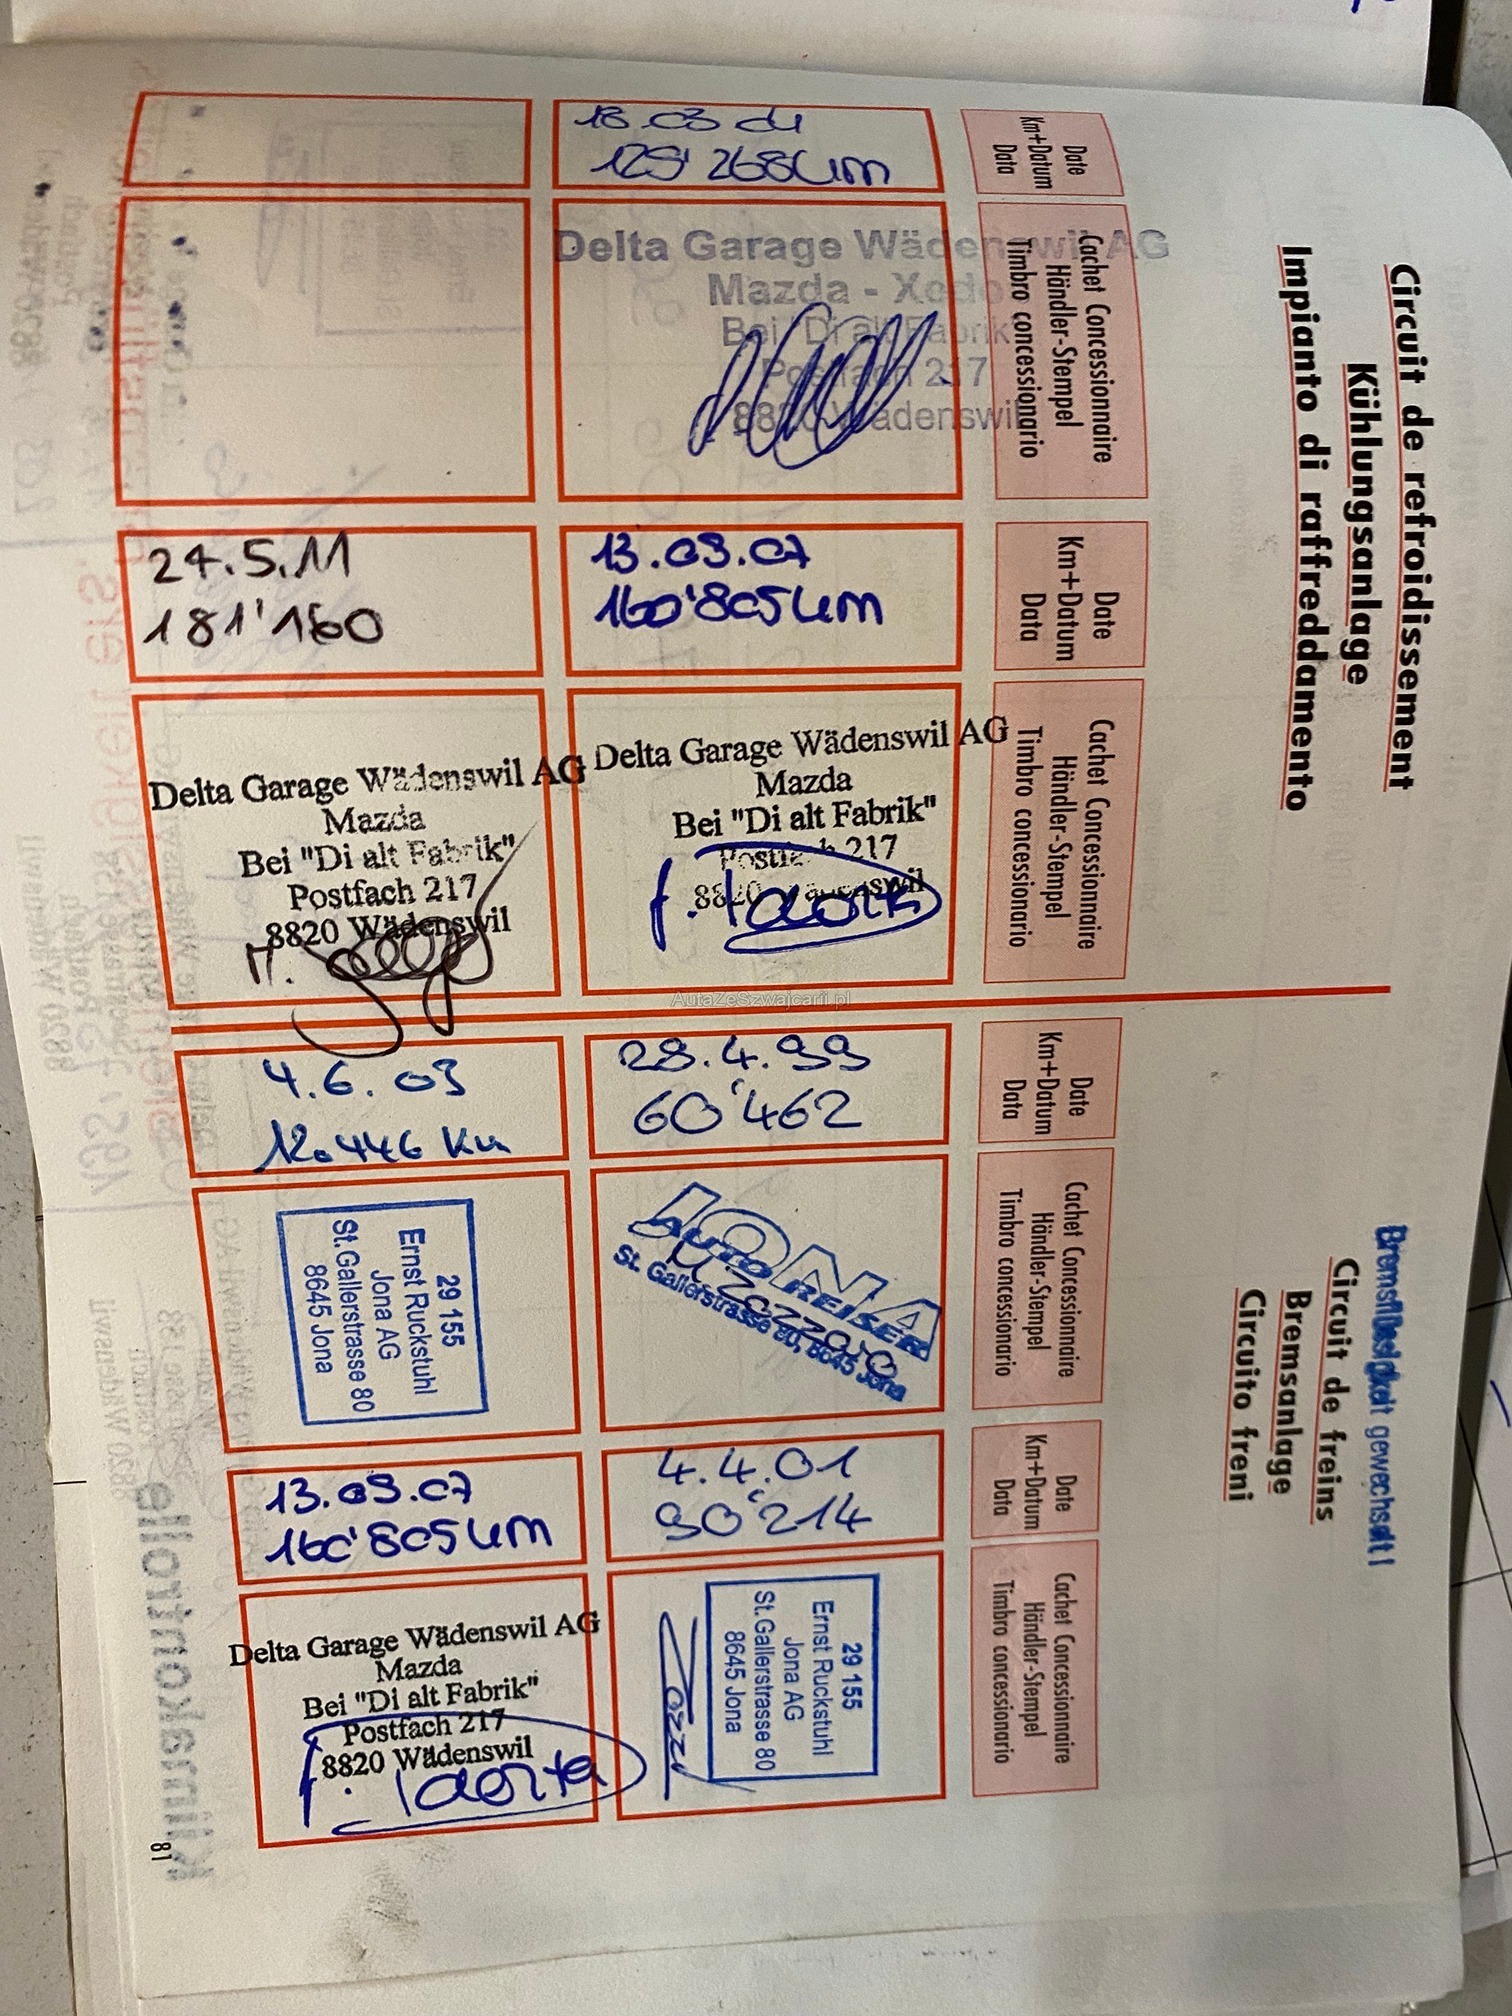 Circuit de refroidissement
Kühlungsanlage
Impianto di raffreddamento
Date
Km+Datum
Data
Cachet Concessionnaire
Händler-Stempel
Timbro concessionario
Date
Km+Datum
Data
Cachet Concessionnaire
Händler-Stempel
Timbro concessionario
18.03 04
129'268 km
Delta Garage Wädenswil AG
Mazda - Xedos
Bei "Di alt Fabrik"
Postfach 217
8820 Wädenswil
13.09.07
160'805 km
Delta Garage Wädenswil AG
Mazda
Bei "Di alt Fabrik"
Postfach 217
8820 Wädenswil
24.5.11
181'160
Delta Garage Wädenswil AG
Mazda
Bei "Di alt Fabrik"
Postfach 217
8820 Wädenswil
Bremsflüssigkeit gewechselt!
Circuit de freins
Bremsanlage
Circuito freni
Date
Km+Datum
Data
Cachet Concessionnaire
Händler-Stempel
Timbro concessionario
Date
Km+Datum
Data
Cachet Concessionnaire
Händler-Stempel
Timbro concessionario
29.4.99
60'462
JONA
AUTO REISER
St. Gallerstrasse 80, 8645 Jona
4.4.01
90'214
29 155
Ernst Ruckstuhl
Jona AG
St.Gallerstrasse 80
8645 Jona
4.6.03
29 155
Ernst Ruckstuhl
Jona AG
St.Gallerstrasse 80
8645 Jona
13.09.07
160'805 km
Delta Garage Wädenswil AG
Mazda
Bei "Di alt Fabrik"
Postfach 217
8820 Wädenswil
81
AutaZeSzwajcarii.pl